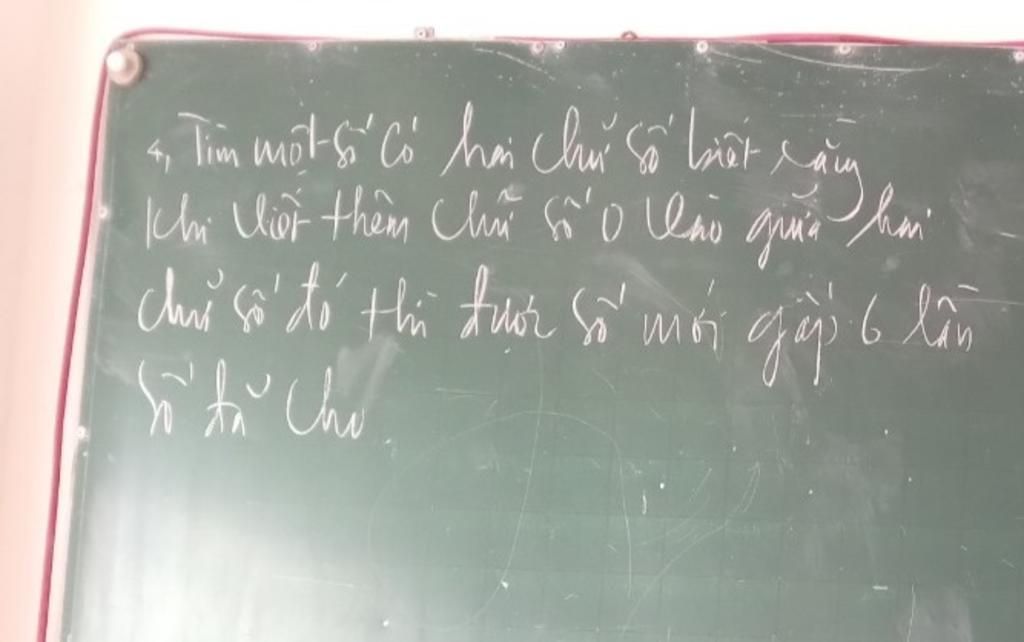 4, Tìm một số có hai chữ số biết rằng
khi viết thêm chữ số 0 vào giữa hai
chữ số đó thì được số mới gấp 6 lần
số đã cho